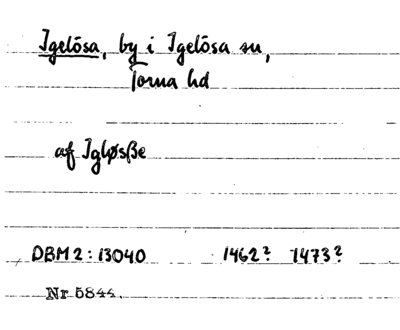 Igelösa, by i Igelösa sn,
Torna hd
af Igløsße
DBM 2:13040 1462? 1473?
Nr 5844.